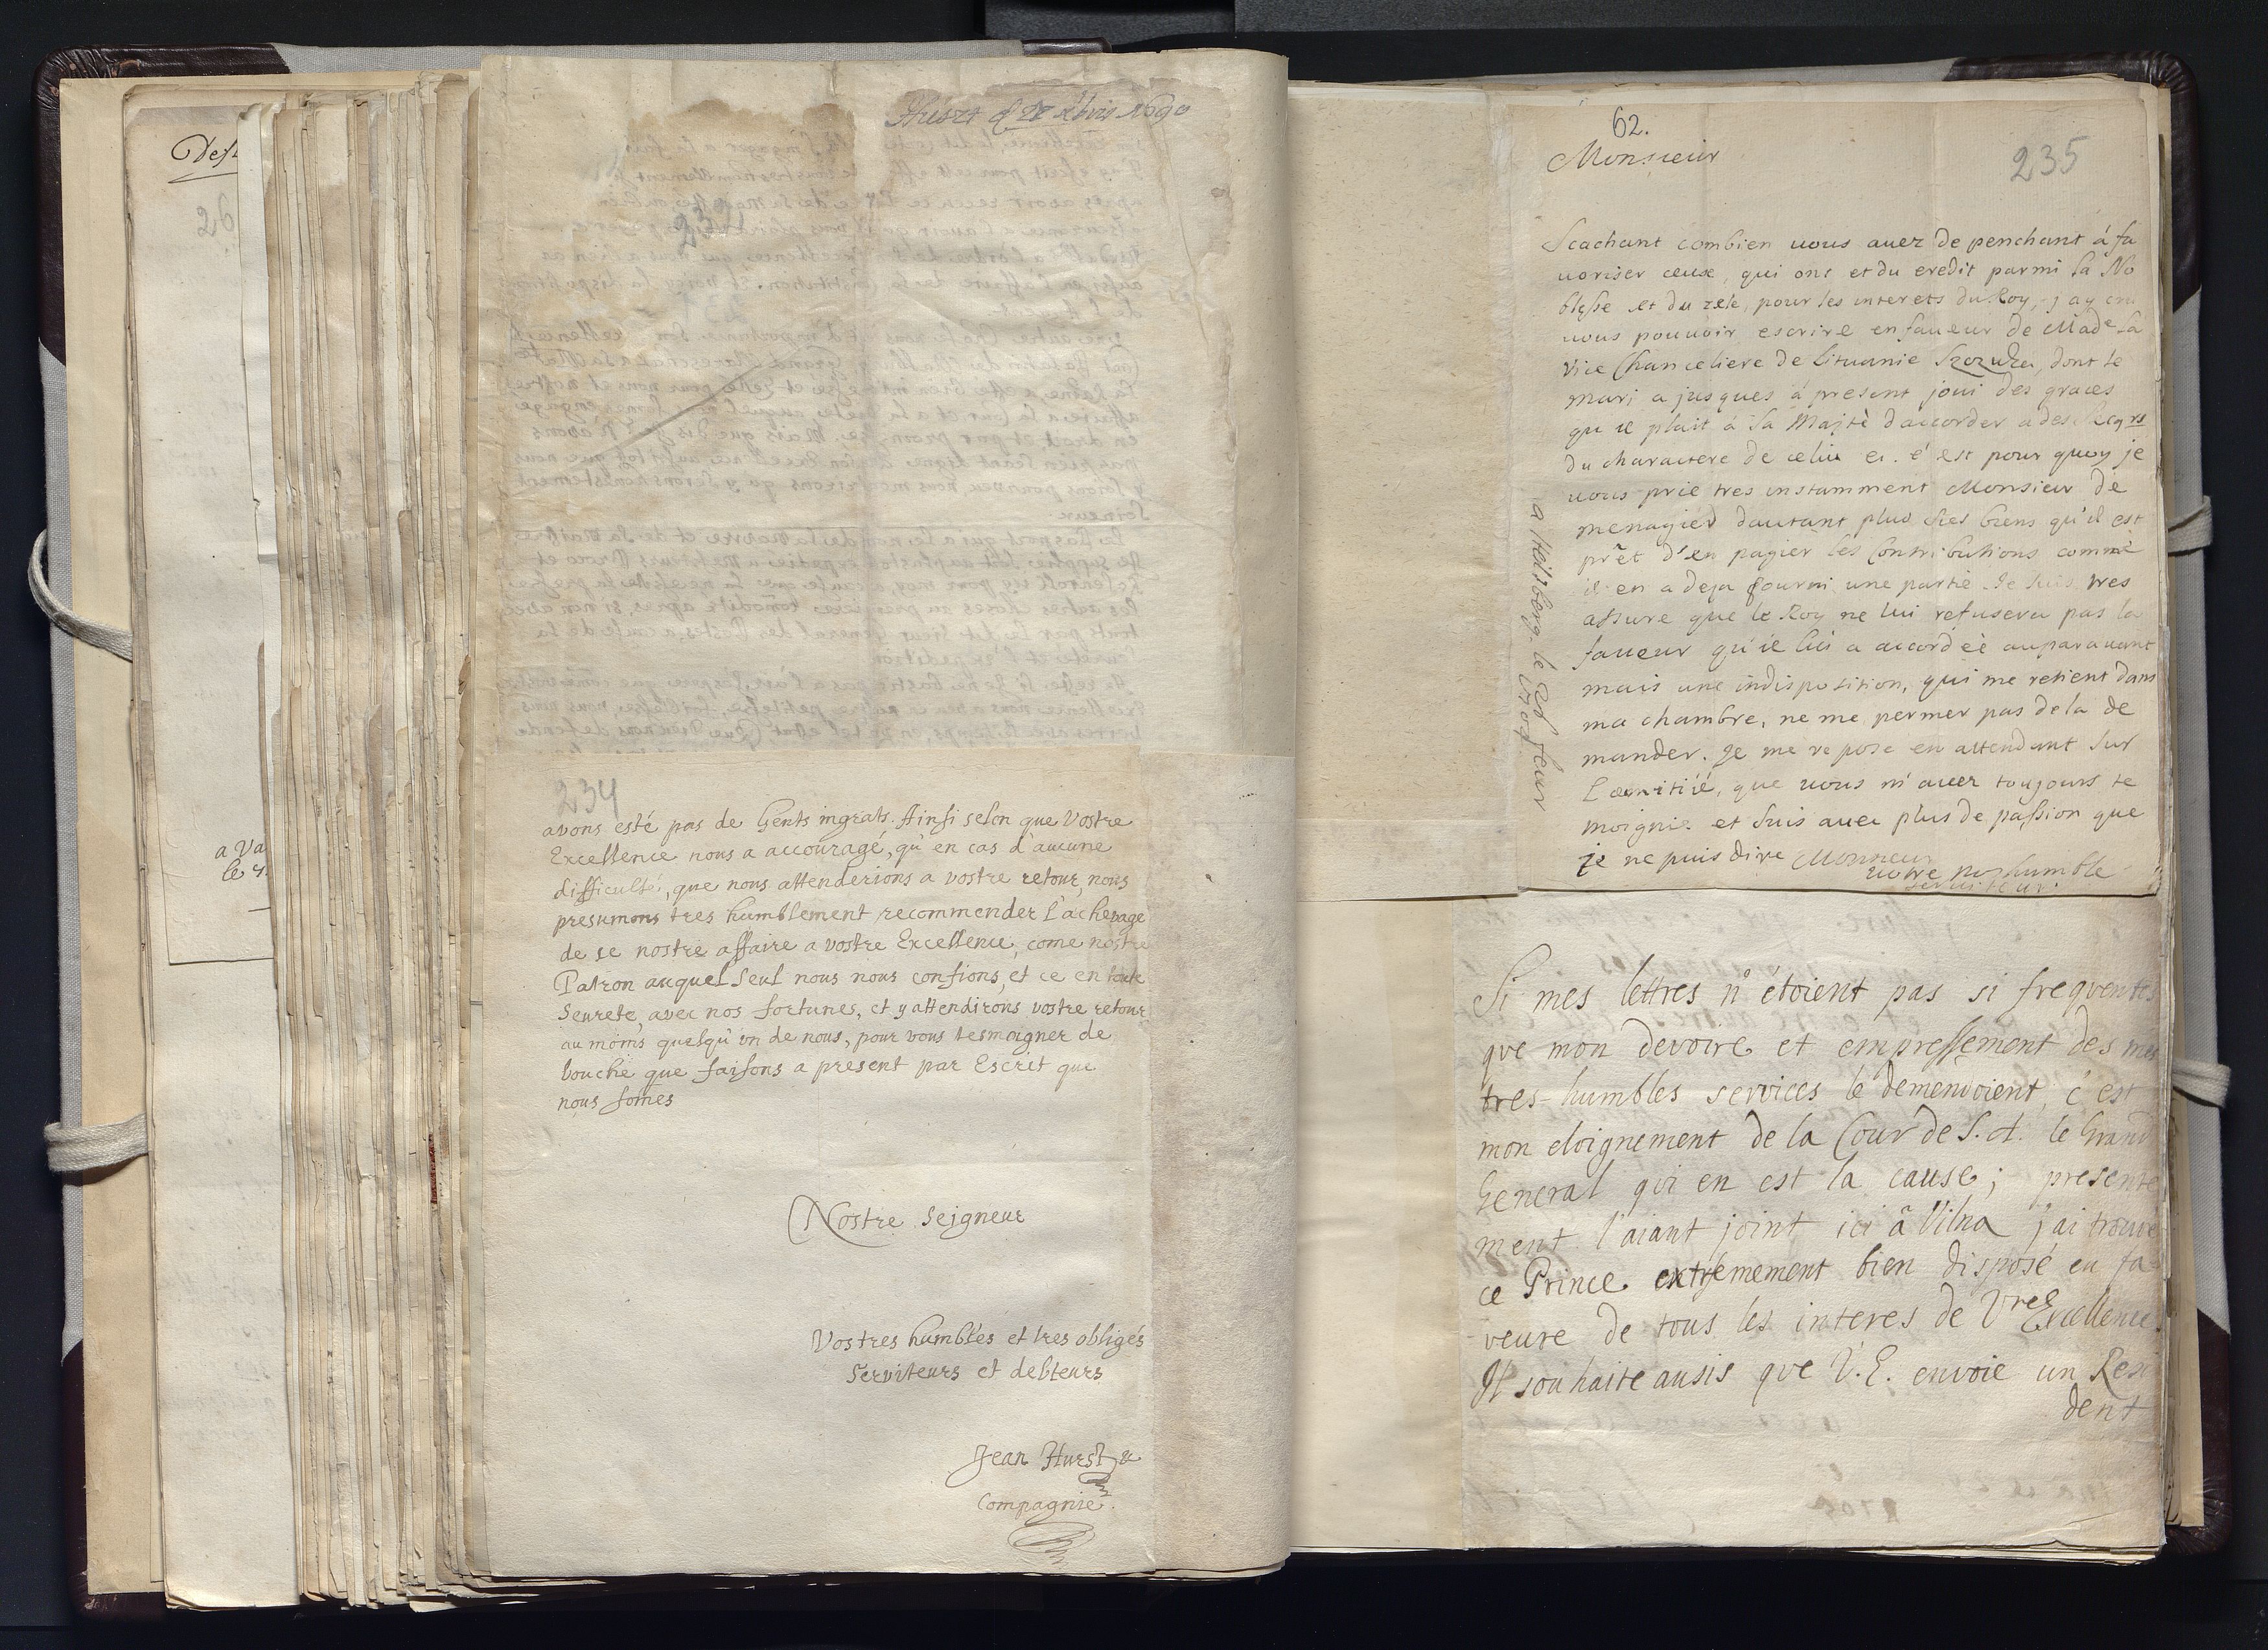 Desi
26
a Va
le
1690
232
234
avons esté pas de Gents ingrats. Ainsi selon que Vostre
Excellence nous a accouragé, qu'en cas d'aucune
difficulté, que nous attenderions a vostre retour, nous
presumons tres humblement recommender l'achevage
de se nostre affaire a vostre Excellence, come nostre
Patron auquel seul nous nous confions, et ce en toute
Seurete, avec nos fortunes, et y attendirons vostre retour
au moins quelqu'un de nous, pour vous tesmoigner de
bouche que faisons a present par Escrit que
nous somes
Nostre Seigneur
Vostres humbles et tres obligés
Serviteurs et debteurs
Jean Hurst &
Compagnie.
62.
235
Monsieur
Scachant combien vous avez de penchant á fa
voriser ceux, qui ont et du credit parmi la No
blesse et du zele, pour les interets du Roy, j'ay cru
vous pouvoir escrire en faveur de Made la
Vice Chanceliere de Lituanie Szczuka, dont le
mari a jusques á present joui des graces
qu'il plait á Sa Majté d'accorder a des Seigrs
du charactere de celui ci. c'est pour quoy je
vous prie tres instamment Monsieur de
menagier dautant plus ses biens qu'il est
prêt d'en pagier les Contributions comme
il en a deja fourni une partie. Je suis tres
assure que le Roy ne lui refusera pas la
faveur qu'il lui a accordéé auparavant
mais une indisposition, qui me retient dans
ma chambre, ne me permet pas de la de
mander. Je me repose en attendant sur
l'amitié, que vous m'avez toujours te
moignie et suis avec plus de passion que
je ne puis dire Monsieur
votre humble
serviteur.
a Heilsberg. le
Si mes lettres n'étoient pas si frequentes
que mon devoire et empressement des mes
tres-humbles services le demenvoient, c'est
mon eloignement de la Cour de S. A. le Grand
General qui en est la cause; presente
ment l'aiant joint ici â Vilna j'ai trouvé
ce Prince extrêmement bien disposé en fa
veure de tous les interes de Vre Excellence.
Il souhaite ausis que V. E. envoie un Resi
dent